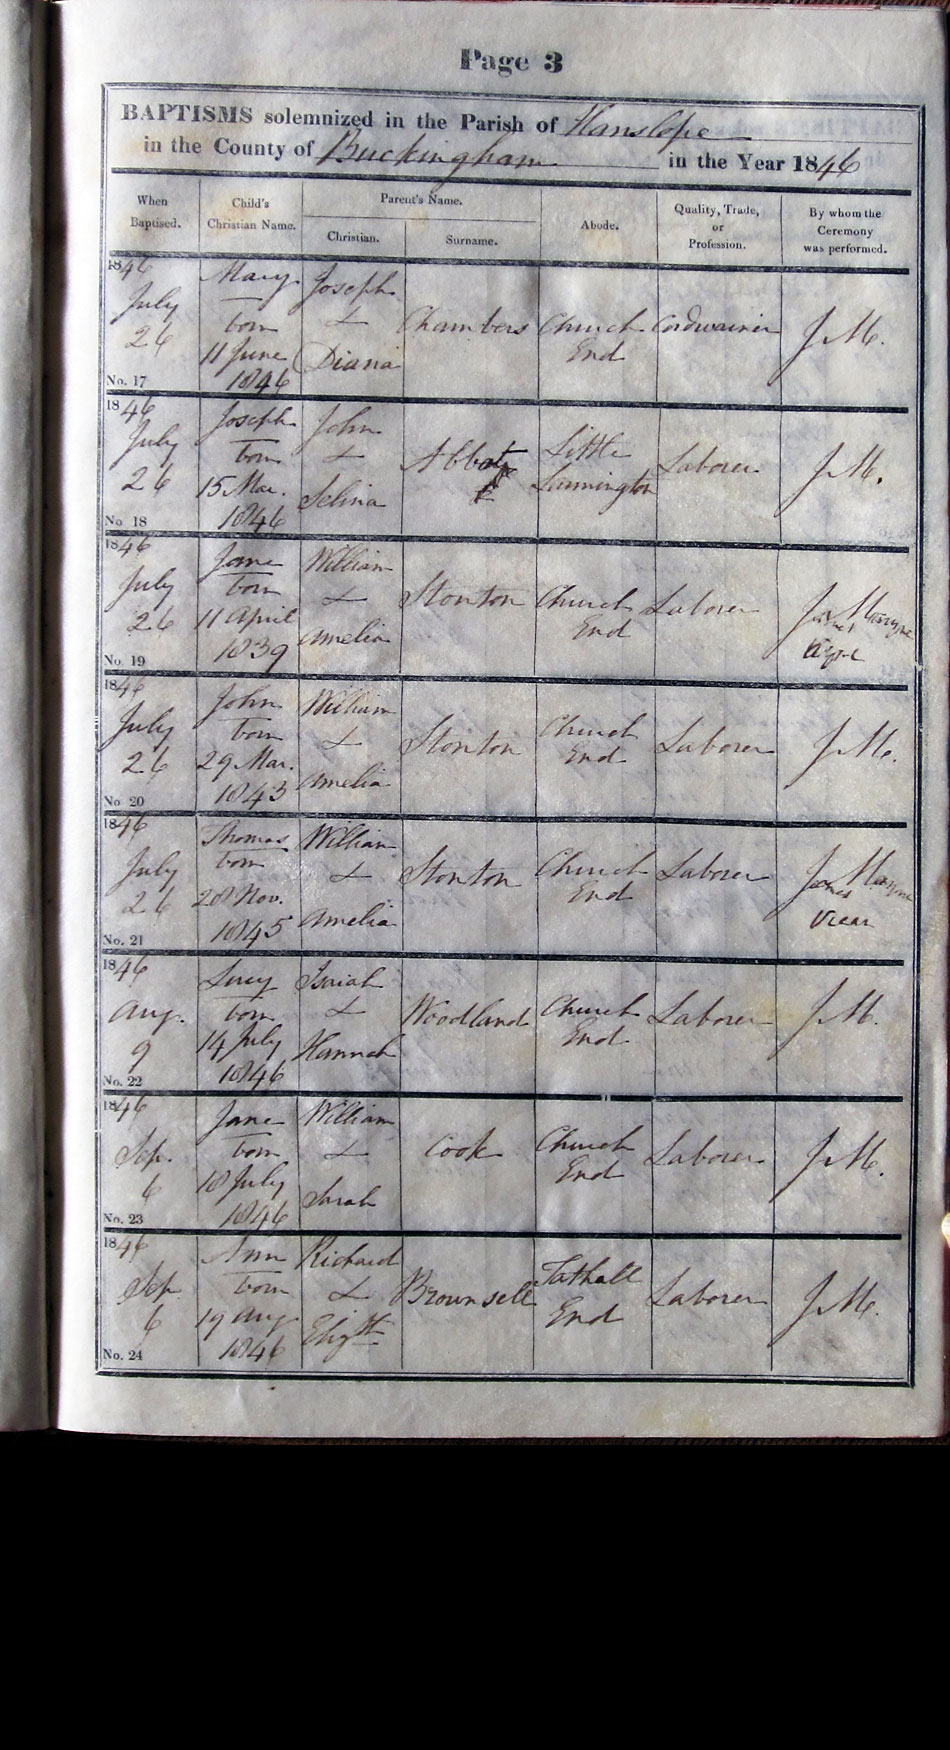 Page 3
BAPTISMS solemnized in the Parish of Hanslope
in the County of Buckingham in the Year 1846
When Baptised.
Child's Christian Name.
Parent's Name.
Christian.
Surname.
Abode.
Quality, Trade, or Profession.
By whom the Ceremony was performed.
1846 July 26 No. 17
Mary born 11 June 1846
Joseph & Diana
Chambers
Church End
Cordwainer
J M.
1846 July 26 No 18
Joseph born 15 Mar. 1846
John & Selina
Abbott
Little
Laborer
J M.
1846 July 26 No. 19
Jane born 11 April 1839
William & Amelia
Stonton
Church End
Laborer
James Mayne
1846 July 26 No 20
John born 29 Mar. 1843
William & Amelia
Stonton
Church End
Laborer
J M.
1846 July 26 No. 21
Thomas born 28 Nov. 1845
William & Amelia
Stonton
Church End
Laborer
James Mayne Vicar
1846 Aug. 9 No. 22
Lucy born 14 July 1846
Isaiah & Hannah
Woodland
Church End
Laborer
J M.
1846 Sep. 6 No. 23
Jane born 18 July 1846
William & Sarah
Cook
Church End
Laborer
J M.
1846 Sep 6 No. 24
Ann born 19 Aug 1846
Richard & Elizth
Brownsell
Tathall End
Laborer
J M.